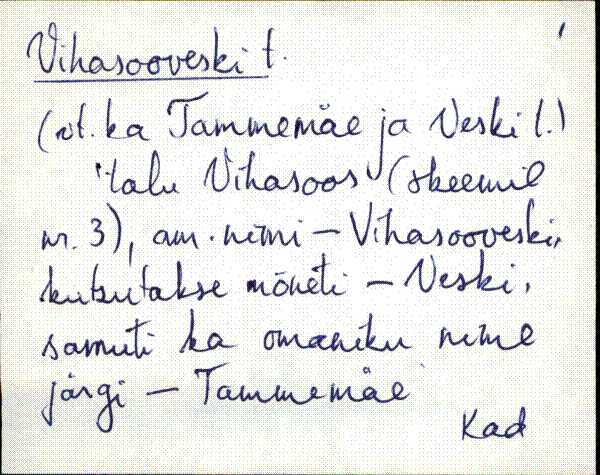 Vihasooveski t.
(vt. ka Tammemäe ja Veski t.)
talu Vihasoos (skeemil
nr. 3), am. nimi – Vihasooveski,
kutsutakse mõneti – Veski,
samuti ka omaniku nime
järgi – Tammemäe
Kad